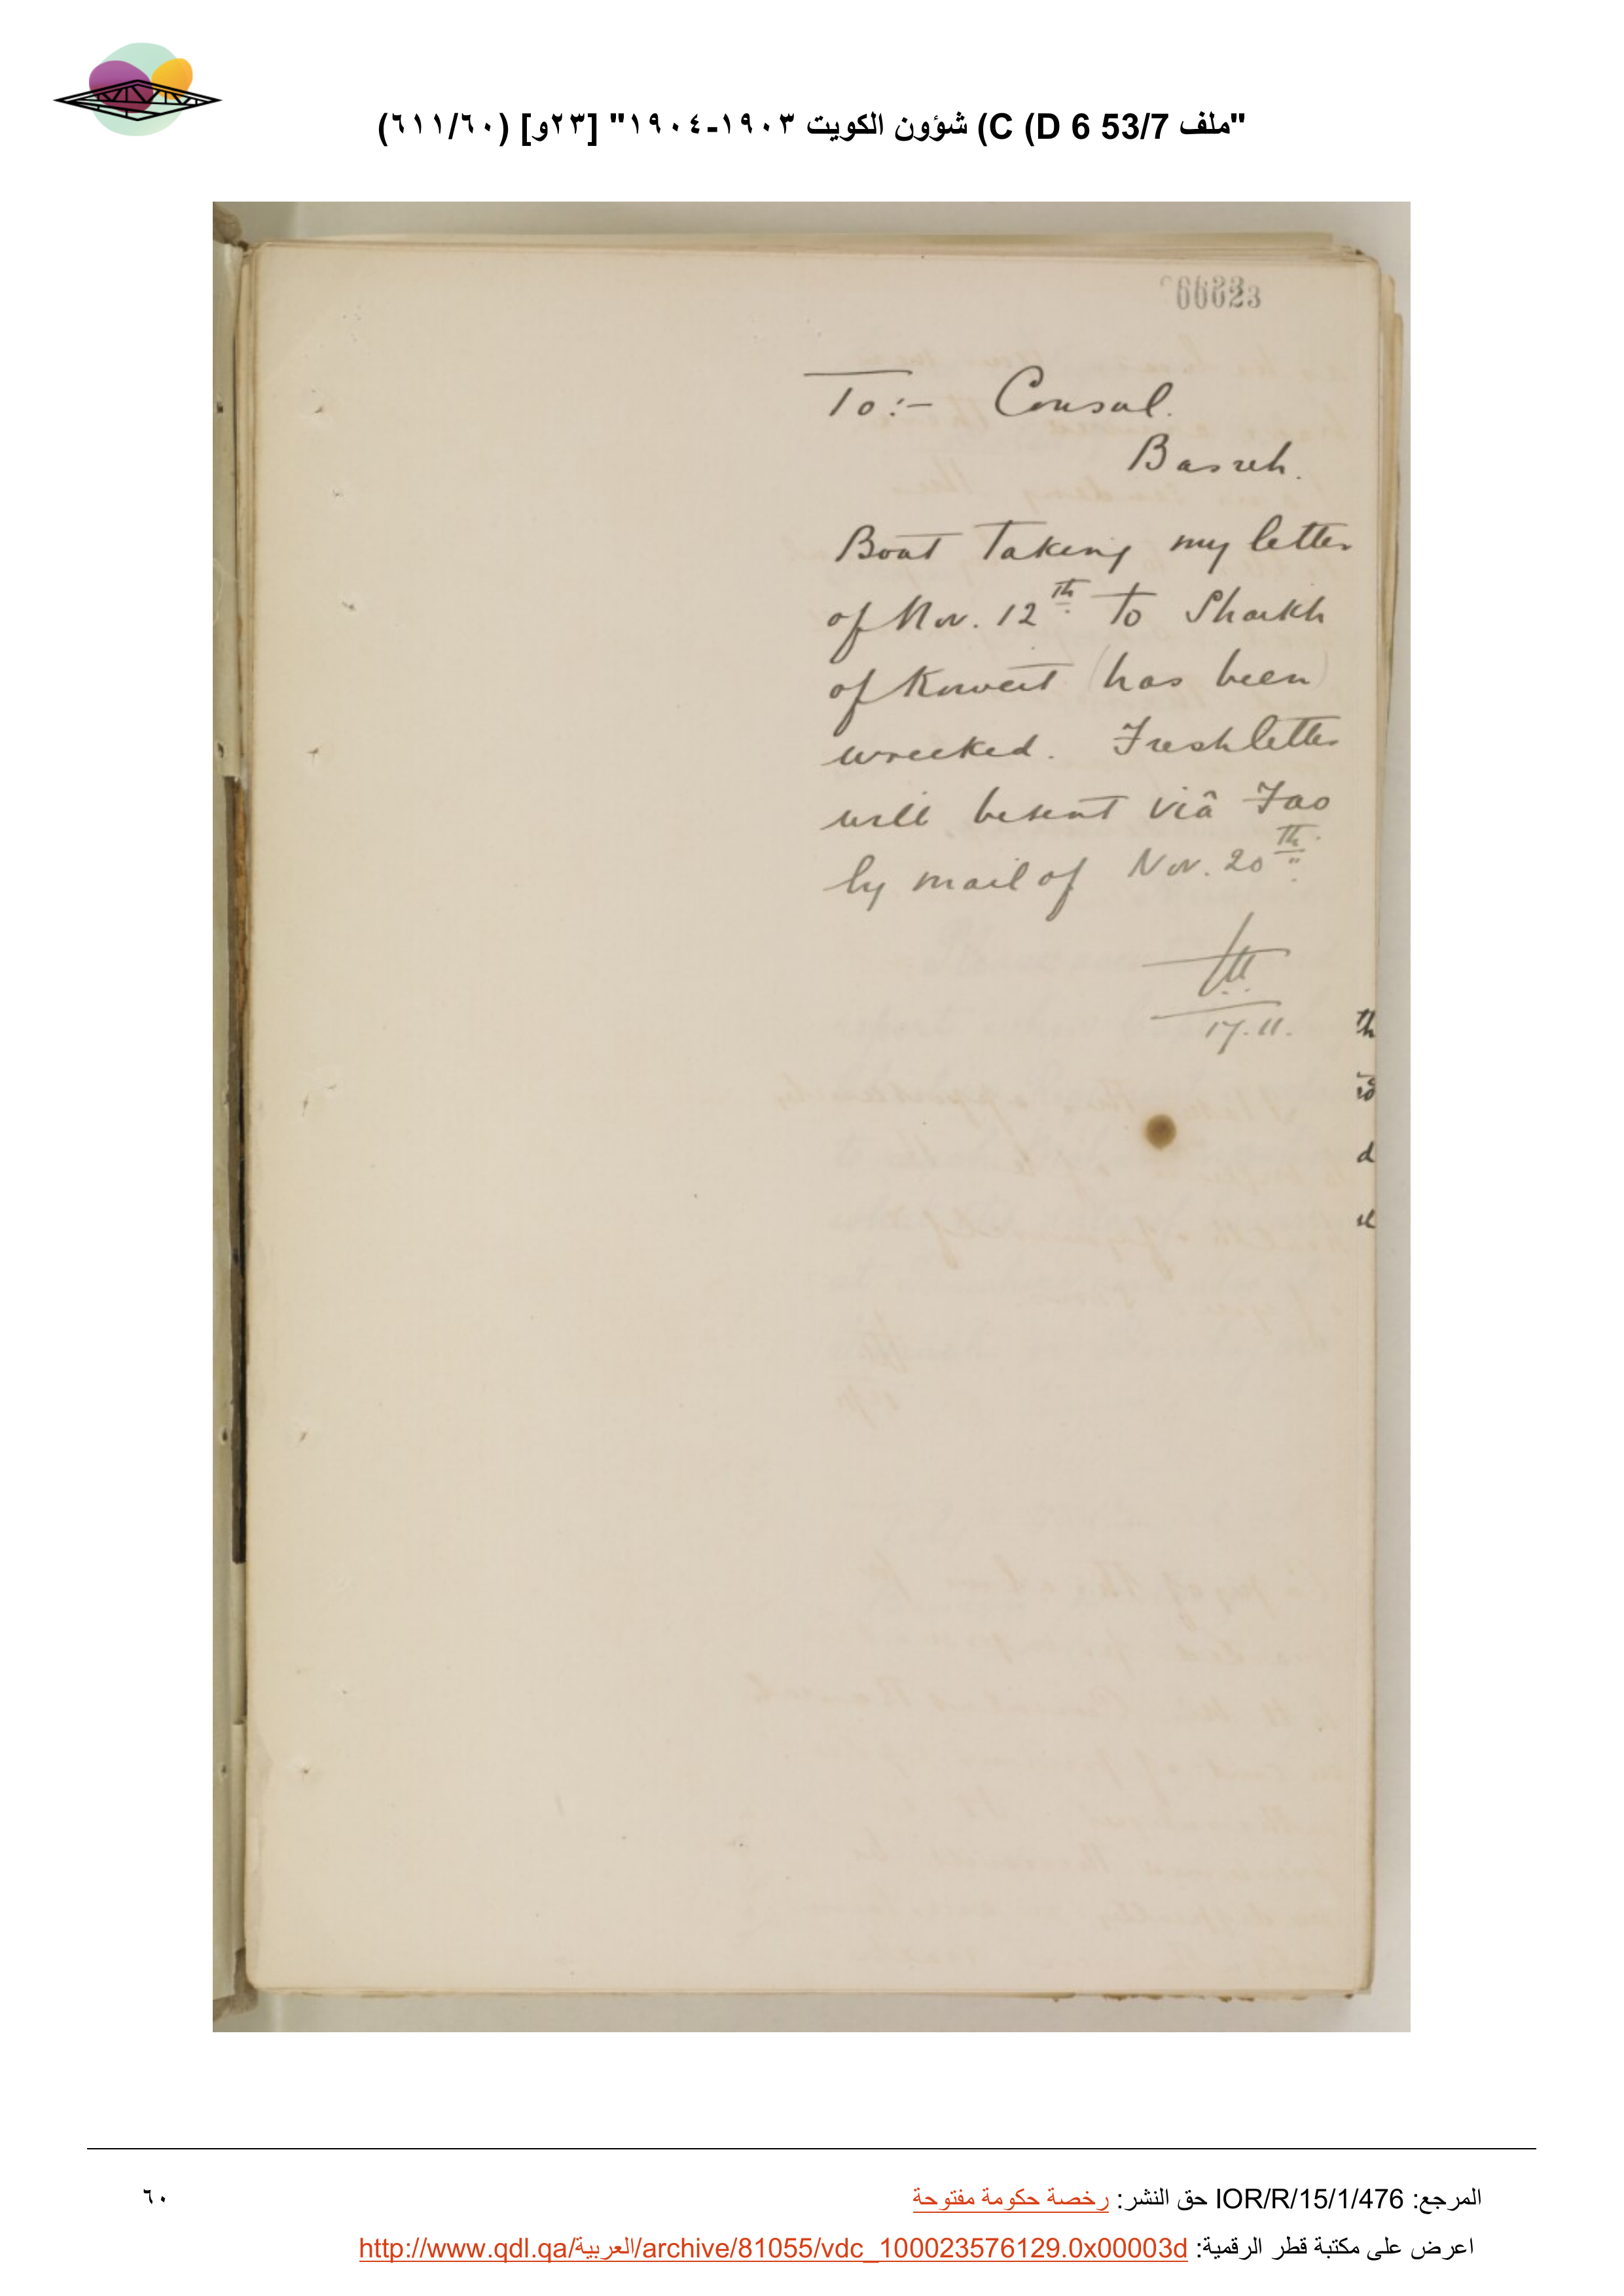 "ملف 53/7 D 6) C) شؤون الكويت ١٩٠٣-١٩٠٤" [٢٣و] (٦١١/٦٠)
To:- Consul.
Basreh.
Boat Taking my letter
of Nov. 12th to Shaikh
of Kuweit (has been)
wrecked. Fresh letter
will be sent viâ Fao
by mail of Nov. 20th
17.11.
th
d
المرجع: IOR/R/15/1/476 حق النشر: رخصة حكومة مفتوحة
٦٠
اعرض على مكتبة قطر الرقمية: http://www.qdl.qa/العربية/archive/81055/vdc_100023576129.0x00003d